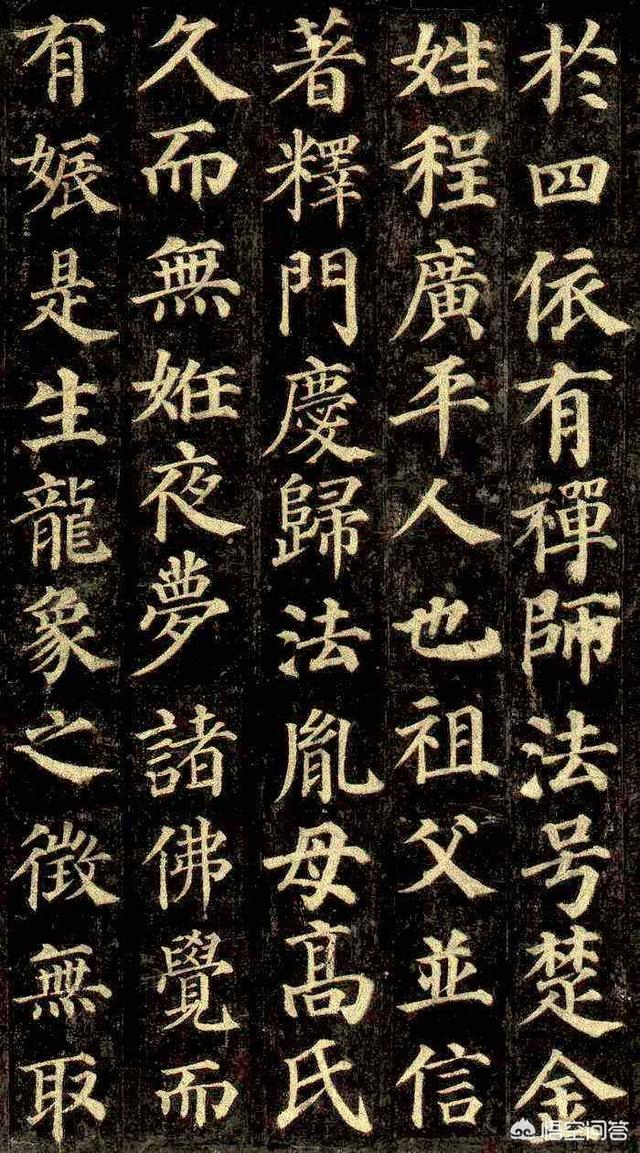 於四依有禪師法号楚金
姓程廣平人也祖父並信
著釋門慶歸法胤母高氏
久而無姙夜夢諸佛覺而
有娠是生龍象之徵無取
悟空问答